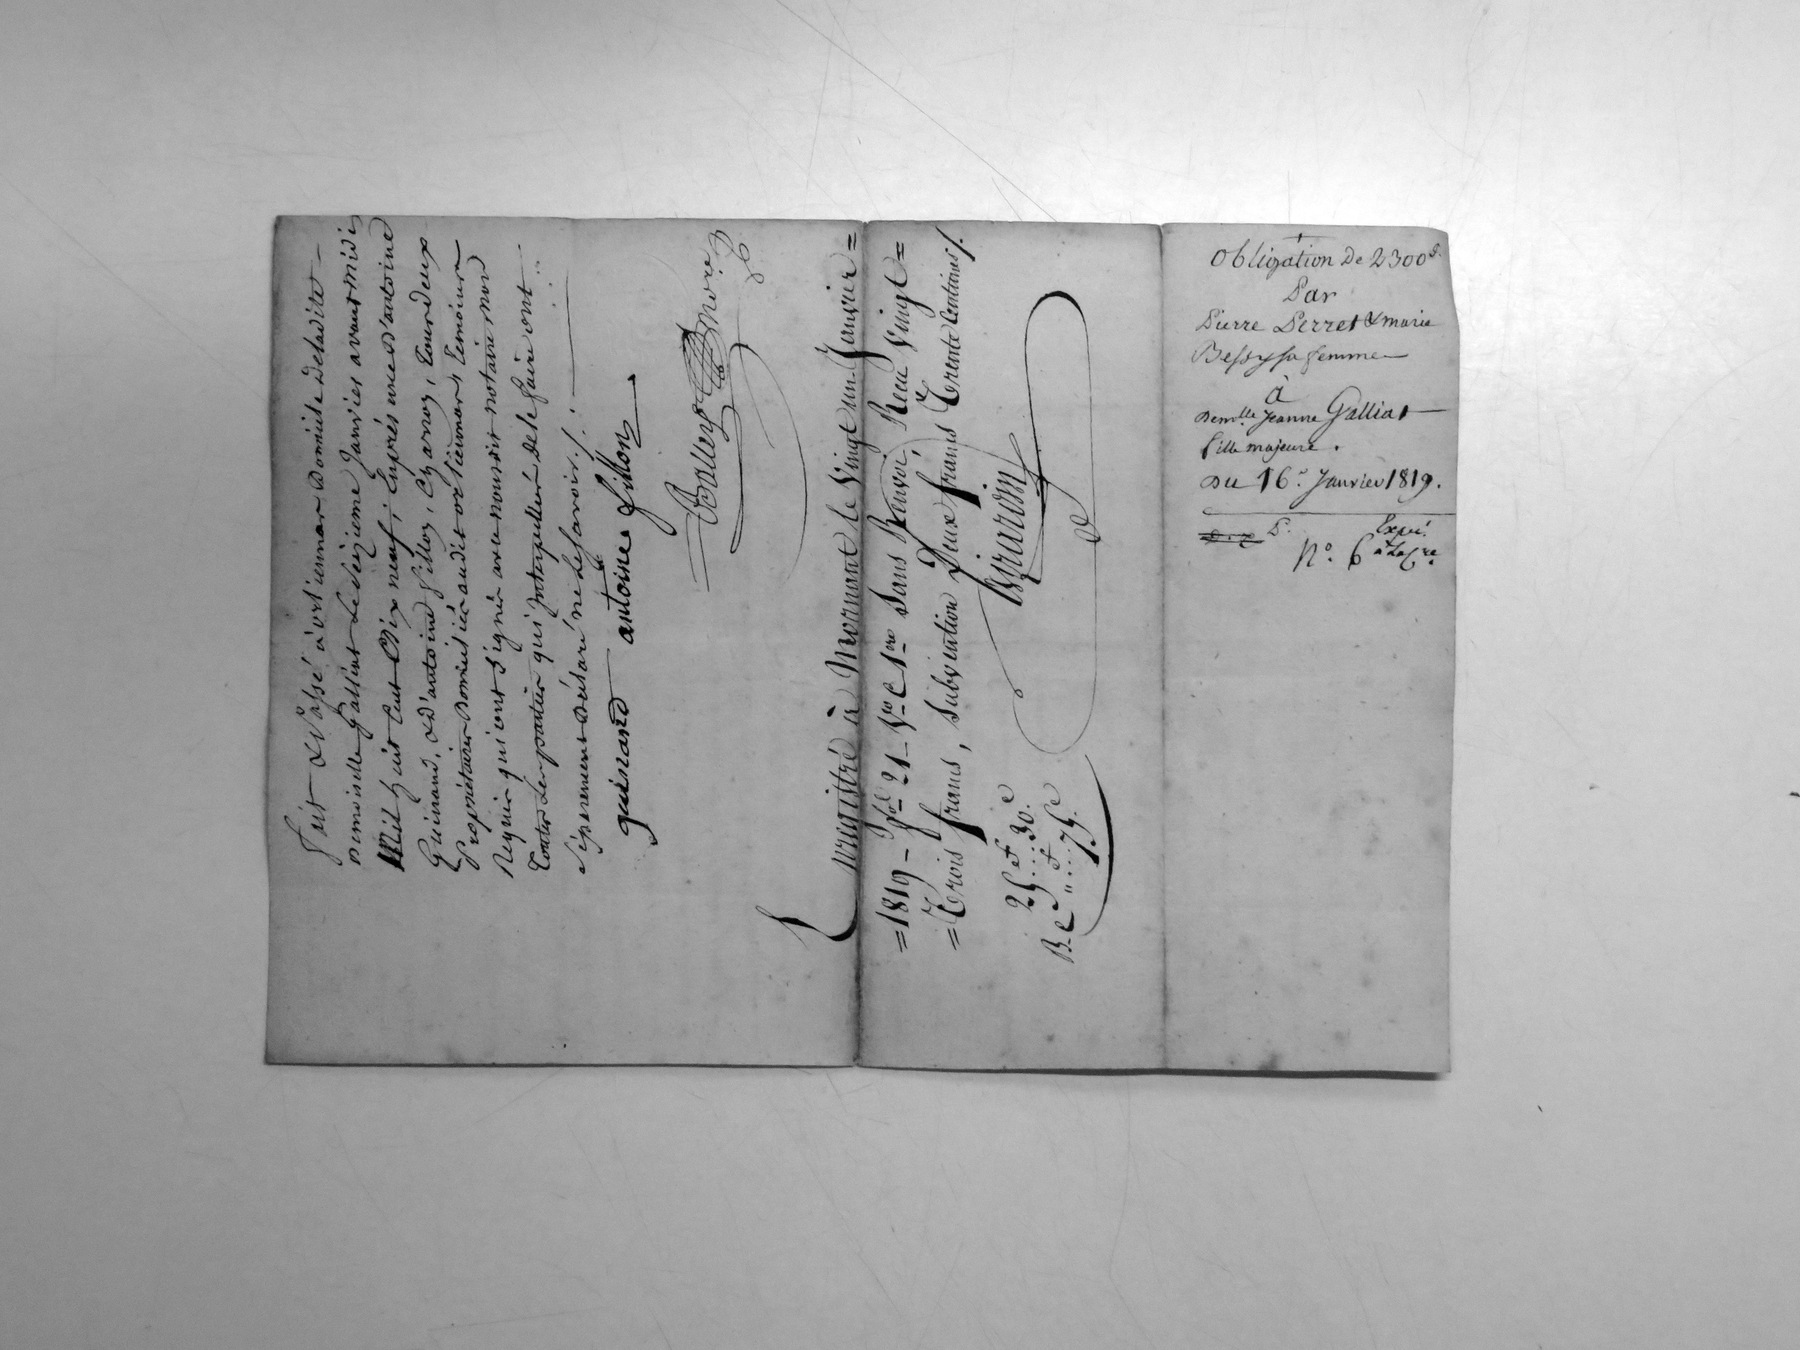 fait & Passé à orliennas Domicile de ladite
Demoiselle Galliat Le Seizieme Janvier avant midi
Mil huit Cent Dix neuf; En présence d'antoine
Guinand, & d'antoine fillon, Charron, Tous deux
Propriétaires Domiciliés audit orliennas, temoins
Requis qui ont Signés avec nousdit notaire, non
toutes les parties qui Interpellées de le faire ont
Séparement Déclaré ne le Savoir /.
guinand antoine fillon
Enregistré à Mornant le Vingt un Janvier =
= 1819 - fol. 21 - Vo C 1re Sans Renvoi, Recu Vingt =
= Trois francs, Subvention Deux francs Trente Centimes /.
25 f 30 c
B.C " 75 c
Obligation de 2300 f.
Par
Pierre Perret & marie
Bessy sa femme
à
Demlle Jeanne Galliat
fille majeure.
Du 16 Janvier 1819.
No. 6